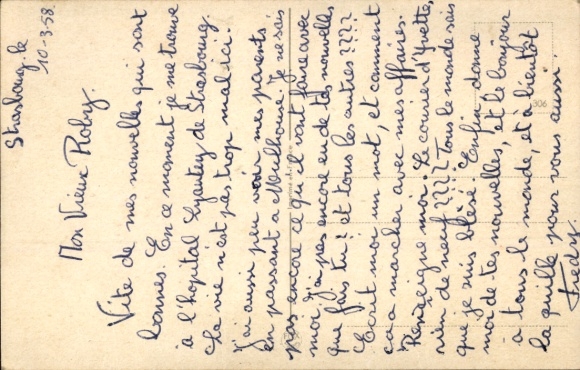 Strasbourg. le
10-3-58.
Mon Vieux Roby.
Vite de mes nouvelles qui sont
bonnes. En ce moment je me trouve
à l'hopital Lyautey de Strasbourg.
La vie n'est pas trop mal ici.
J'ai aussi peu voir mes parents
en passant a Mulhouse. Je ne sais
pas encore ce qu'il vont faire avec
moi. J'ai pas encore eu de tes nouvelles
que fais tu? et tous les autres ????
Ecrit moi un mot, et comment
ca a marcher avec mes affaires.
Renseigne moi. Le courier d'Yvette,
rien de neuf ???? Tous le monde sais
que je suis blesé. Enfin donne
moi de tes nouvelles, et le bonjour
a tous le monde, et à bientôt
la quille pour vous aussi.
306